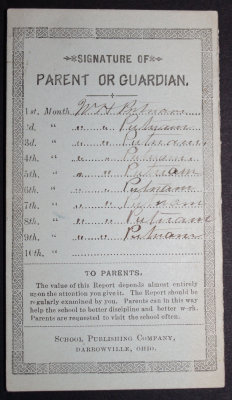 SIGNATURE OF
PARENT OR GUARDIAN.
1st. Month W H Putnam
2d. " " " Putnam
3d. " " " Putnam
4th. " " " Putnam
5th. " " " Putnam
6th. " " " Putnam
7th. " " " Putnam
8th. " " " Putnam
9th. " " " Putnam
10th. "
TO PARENTS.
The value of this Report depends almost entirely
upon the attention you give it. The Report should be
regularly examined by you. Parents can in this way
help the school to better discipline and better work.
Parents are requested to visit the school often.
SCHOOL PUBLISHING COMPANY,
DARROWVILLE, OHIO.